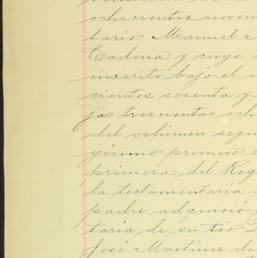 ochocientos noven
tario Manuel
Cadena y cuyo
inscrito bajo el
cientos sesenta y
jas trescientas och
del volúmen segu
gésimo primero
primera del Reg
la testamentaria
padre adquirió
taria de su tio
José Martinez de